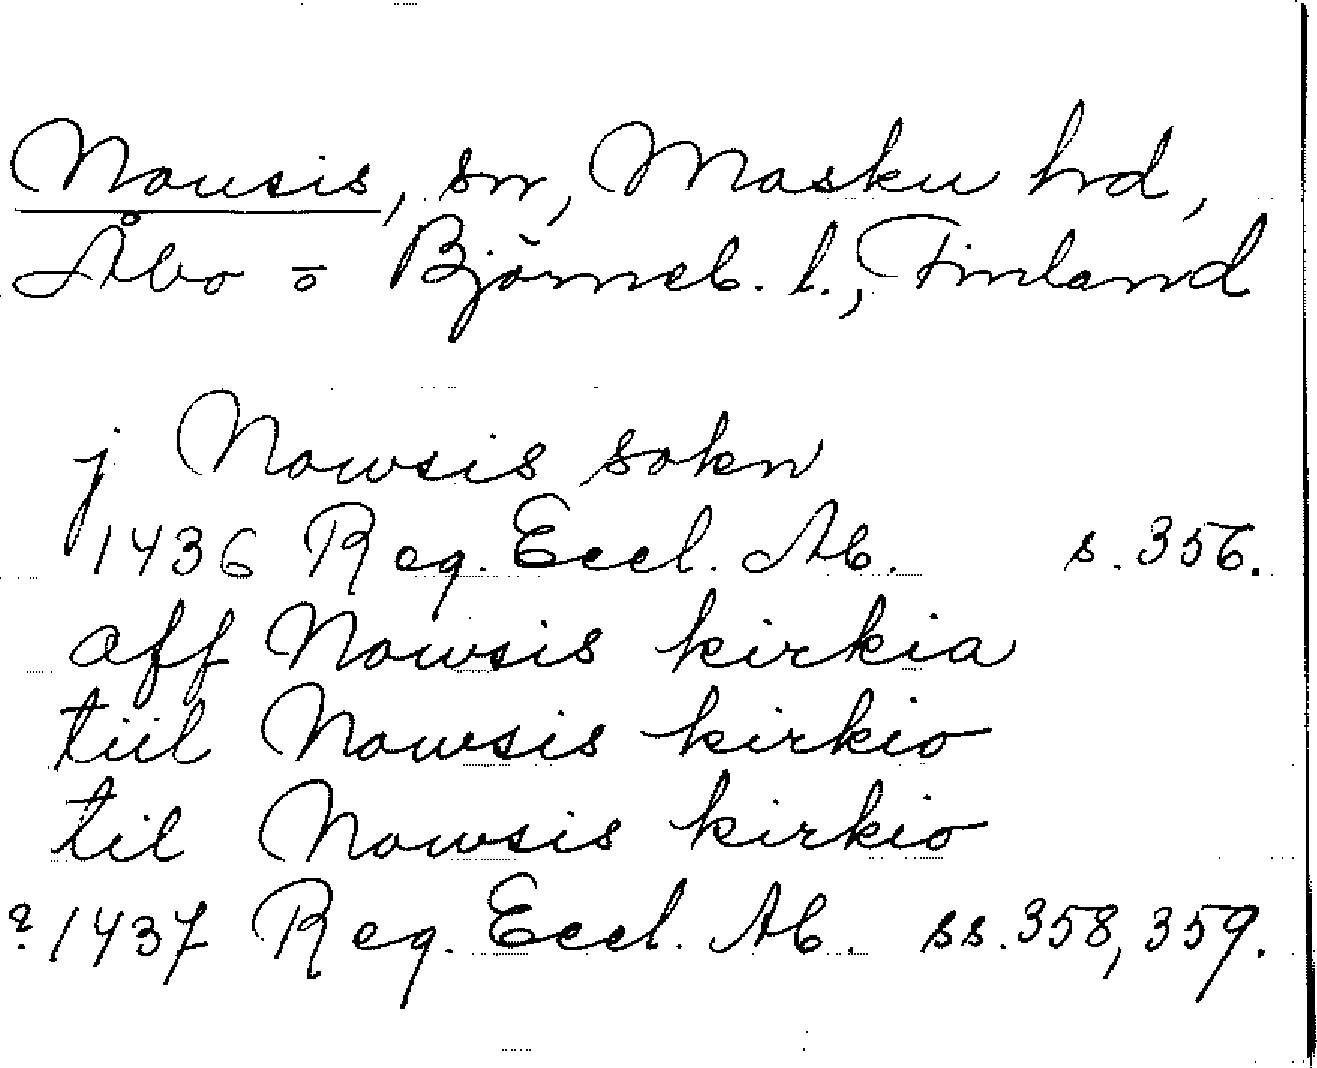 Nousis, sn, Masku hrd,
Åbo o Björneb. l., Finland
j Nowsis sokn
1436 Reg. Eccl. Ab. s. 356.
aff Nowsis kirkia
tiil Nowsis kirkio
til Nowsis kirkio
?1437 Reg. Eccl. Ab. ss. 358, 359.